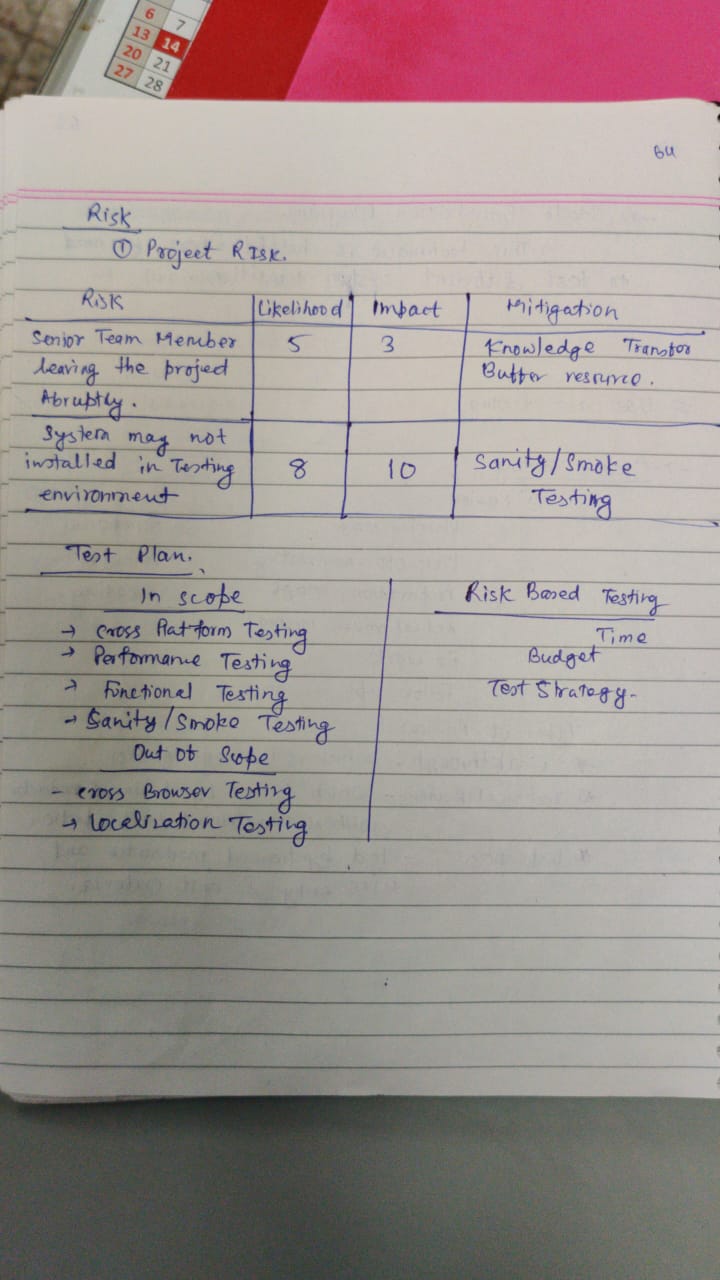 6 7
13 14
20 21
27 28
64
Risk
① Project Risk.
Risk | Likelihood | Impact | Mitigation
Senior Team Member | 5 | 3 | Knowledge Transfor
leaving the project | Buffer resource.
Abruptly.
System may not
installed in Testing | 8 | 10 | Sanity/Smoke
environment | Testing
Test Plan.
In scope
→ Cross Platform Testing
→ Performance Testing
→ Functional Testing
→ Sanity/Smoke Testing
Out Of Scope
- cross Browser Testing
→ Localization Testing
Risk Based Testing
Time
Budget
Test Strategy-